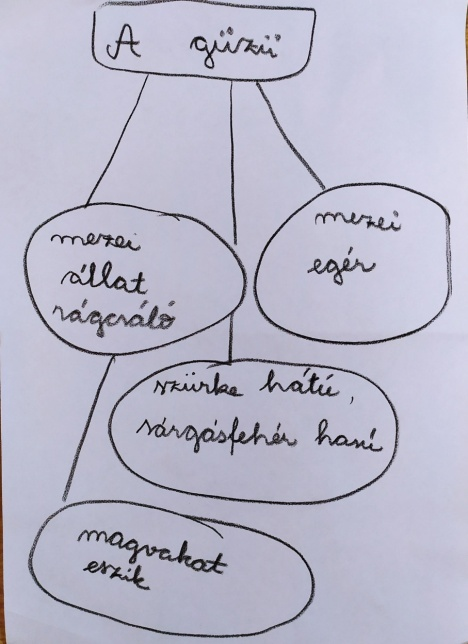 A güzü
mezei
állat
rágcsáló
mezei
egér
szürke hátú,
sárgásfehér hasú
magvakat
eszik